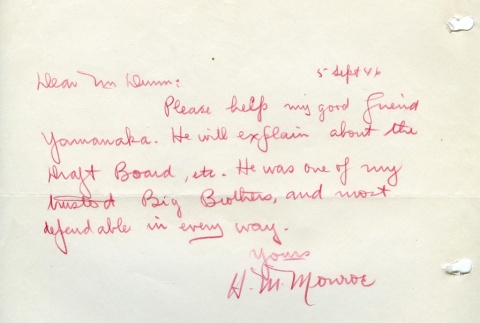 5 Sept 46
Dear Mr Dunn:
Please help my good friend
Yamanaka. He will explain about the
Draft Board, etc. He was one of my
trusted Big Brothers, and most
dependable in every way.
Yours
H. M. Monroe